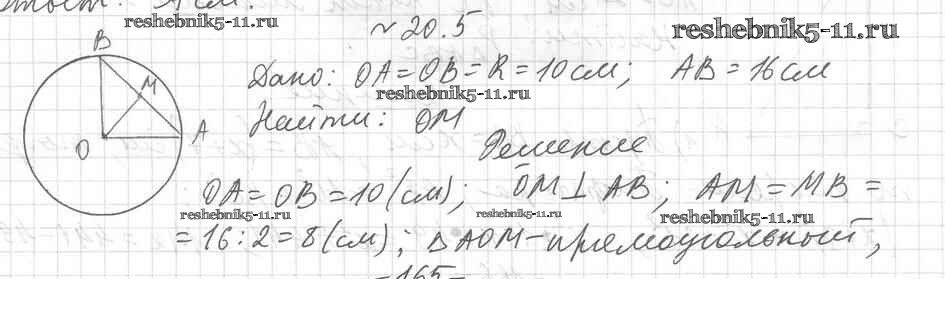 reshebnik5-11.ru
№ 20.5
reshebnik5-11.ru
B
M
A
O
Дано: OA = OB = R = 10 см; AB = 16 см
reshebnik5-11.ru
Найти: OM
Решение
OA = OB = 10 (см); OM ⊥ AB; AM = MB =
reshebnik5-11.ru reshebnik5-11.ru reshebnik5-11.ru
= 16 : 2 = 8 (см); △AOM – прямоугольный,
–165–